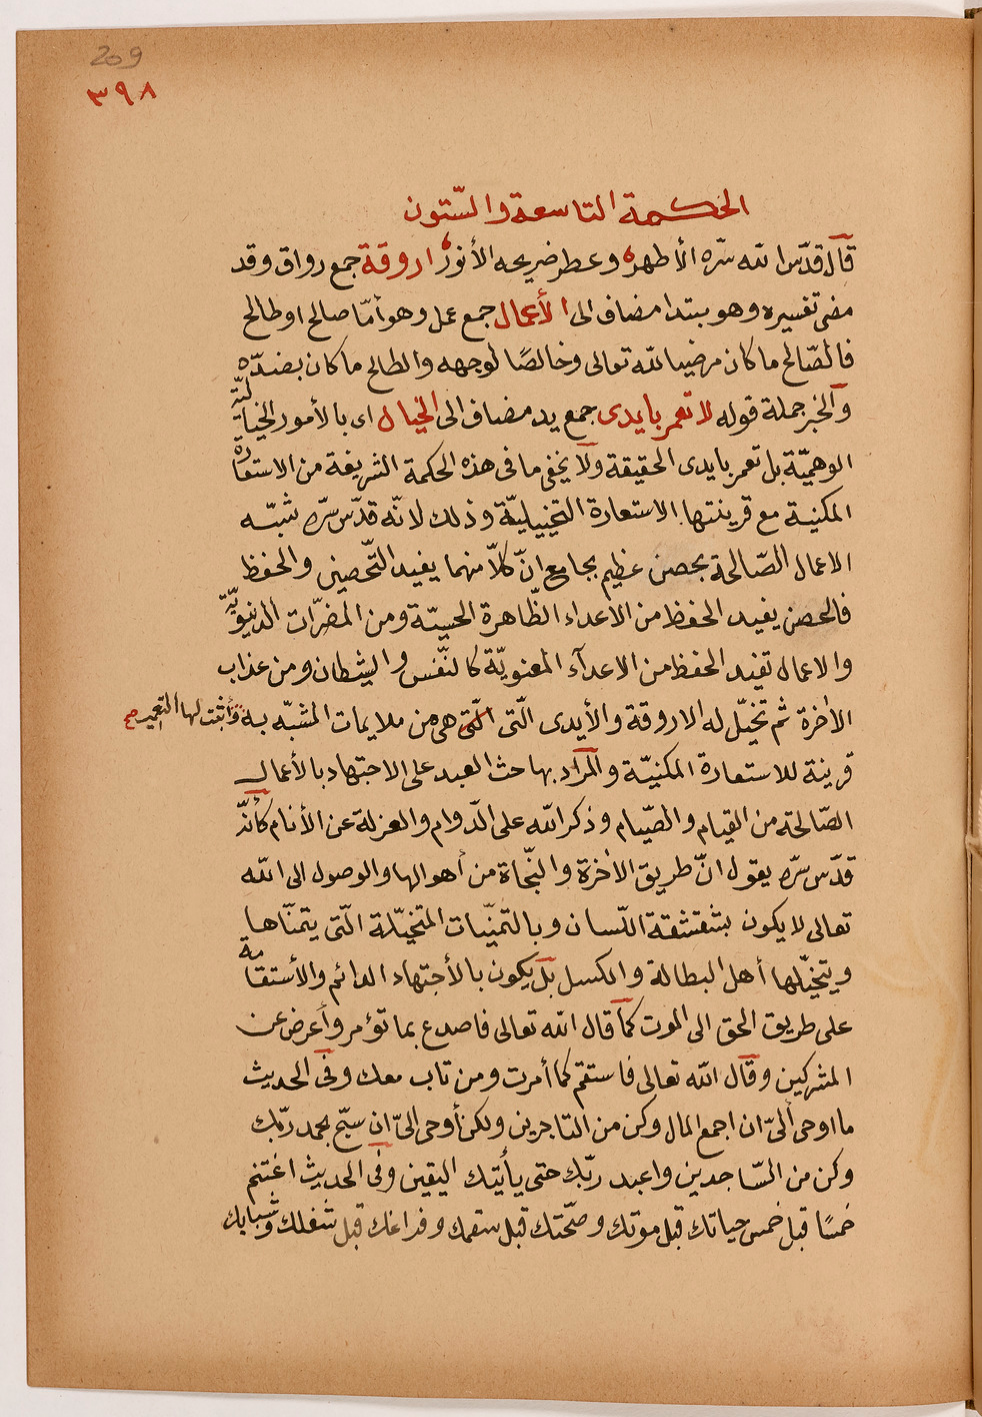 209
٣٩٨
الحكمة التاسعة والسّتون
قال قدّس الله سرّه الأطهر وعطر ضريحه الأنور اروقة جمع رواق وقد
مضى تفسيره وهو مبتدا مضاف الى الأعمال جمع عمل وهو أمّا صالح او طالح
فالصّالح ما كان مرضيا لله تعالى وخالصًا لوجهه والطالح ما كان بضدّه
والخبر جملة قوله لا تعمر بايدى جمع يد مضاف الى الخيال اى بالأمور الخياليّة
الوهميّة بل تعمر بايدى الحقيقة ولا يخفى ما فى هذه الحكمة الشريفة من الاستعارة
المكنية مع قرينتها الاستعارة التخييليّة وذلك لانّه قدّس سرّه شبّه
الاعمال الصّالحة بحصن عظيم بجامع انّ كلاّ منهما يفيد التّحصين والحفظ
فالحصن يفيد الحفظ من الاعداء الظّاهرة الحسيّة ومن المضرّات الدنيويّة
والاعمال تفيد الحفظ من الاعدآء المعنويّة كالنّفس والشيطان ومن عذاب
الاخرة ثم تخيّل له الاروقة والأيدى الّتى الّتى هى من ملايمات المشبّه به وأثبت لها التعمير صح
قرينة للاستعارة المكنيّة والمراد بها حث العبد على الاجتهاد بالأعمال
الصّالحة من القيام والصيام وذكر الله على الدّوام والعزلة عن الأنام كأنّه
قدّس سرّه يقول انّ طريق الاخرة والنّجاة من أهوالها والوصول الى الله
تعالى لا يكون بشقشقة اللّسان وبالتمنّيات المتخيّلة الّتى يتمنّاها
ويتخيّلها أهل البطالة والكسل بل يكون بالأجتهاد الدائم والأستقامة
على طريق الحق الى الموت كما قال الله تعالى فاصدع بما تؤمر وأعرض عن
المشركين وقال الله تعالى فاستقم كما أمرت ومن تاب معك وفى الحديث
ما اوحى ألىّ ان اجمع المال وكن من التاجرين ولكن أوحى الىّ ان سبّح بحمد ربّك
وكن من السّاجدين واعبد ربّك حتى يأتيك اليقين وفى الحديث اغتنم
خمسًا قبل خمس حياتك قبل موتك وصحّتك قبل سقمك وفراغك قبل شغلك وشبابك